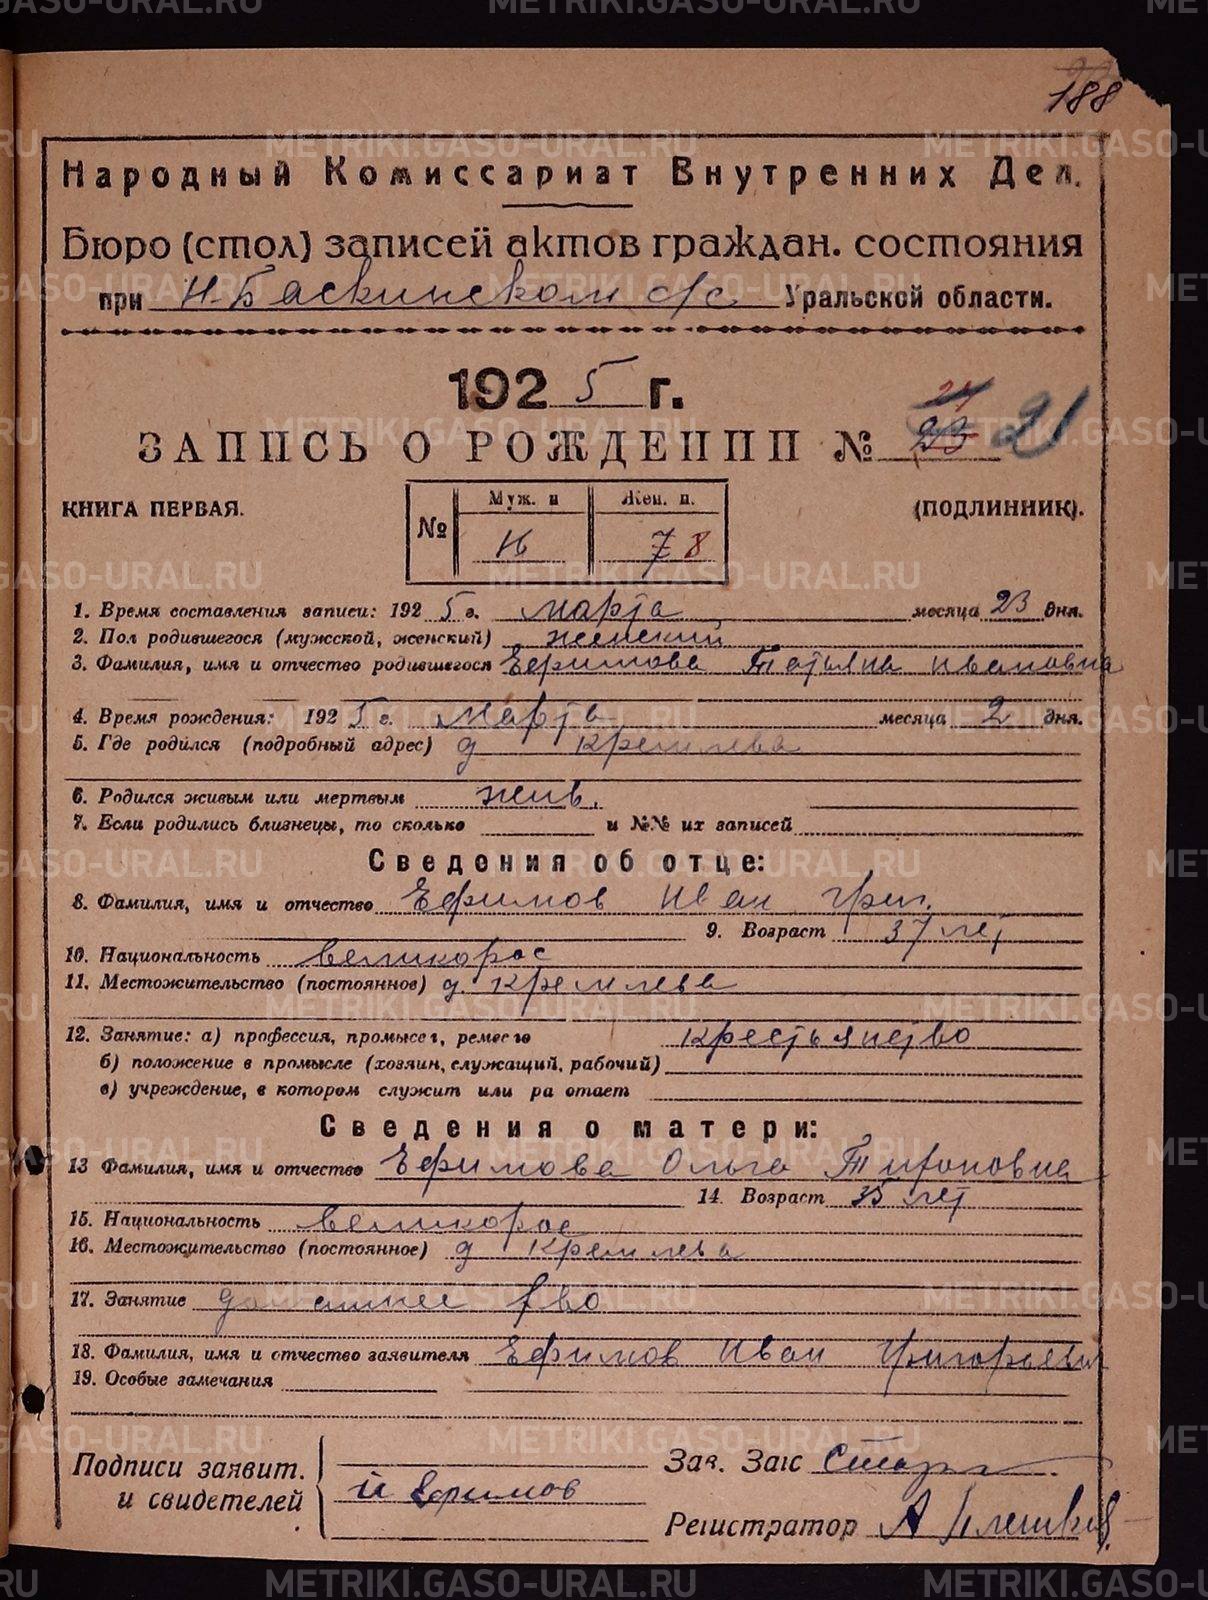 188
Народный Комиссариат Внутренних Дел.
Бюро (стол) записей актов граждан. состояния
при Н-Баскинском с/с Уральской области.
1925 г.
24
ЗАПИСЬ О РОЖДЕНИИ № 23 21
КНИГА ПЕРВАЯ. (ПОДЛИННИК).
№ Муж. п Жен. п.
7 8
1. Время составления записи: 1925 г. марта месяца 23 дня.
2. Пол родившегося (мужской, женский) женский
3. Фамилия, имя и отчество родившегося Ефимова Татьяна Ивановна
4. Время рождения: 1925 г. Марта месяца 2 дня.
5. Где родился (подробный адрес) д Кремлева
6. Родился живым или мертвым жив.
7. Если родились близнецы, то сколько и №№ их записей
Сведения об отце:
8. Фамилия, имя и отчество Ефимов Иван Григ.
9. Возраст 37 лет
10. Национальность великорос
11. Местожительство (постоянное) д. Кремлева
12. Занятие: а) профессия, промысел, ремесло крестьянство
б) положение в промысле (хозяин, служащий, рабочий)
в) учреждение, в котором служит или ра отает
Сведения о матери:
13 Фамилия, имя и отчество Ефимова Ольга
14. Возраст 35 лет
15. Национальность великорос
16. Местожительство (постоянное) д Кремлева
17. Занятие домашнее
18. Фамилия, имя и отчество заявителя Ефимов Иван Григорьевич
19. Особые замечания
Подписи заявит. и свидетелей
И Ефимов
Зав. Загс
Регистратор А
METRIKI.GASO-URAL.RU